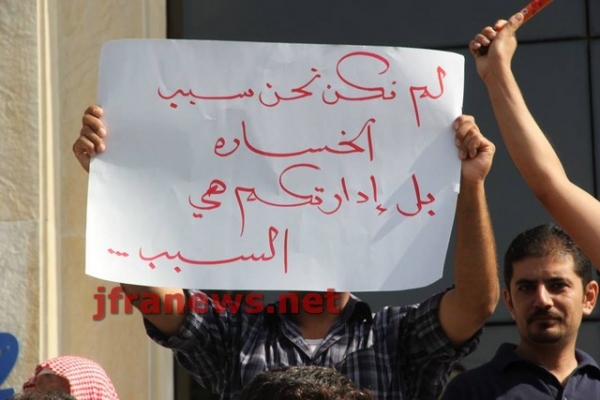 لم نكن نحن سبب
الخساره
بل إدارتكم هي
السبب ...
jfranews.net